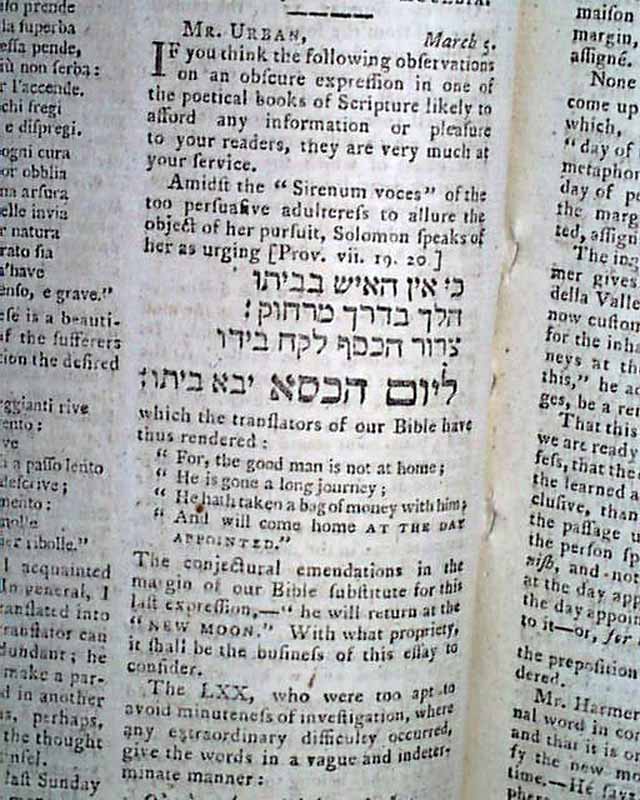 ſo prende
la ſuperba
eſſa pende,
iù non ſerba:
r l'accende.
chi fregi
e diſpregi.
ogni cura
or obblia
na arſura
elle invia
r natura
rato ſia
a'have
enſo, e grave."
eſe is a beauti-
of the ſufferers
tion the deſired
ggianti rive
ento:
ve
i a paſſo lento
deſcrive;
mento:
molle
er ribolle."
I acquainted
In general, I
tranſlated into
tranſlator can
dundant; he
make a par-
d in another
as, perhaps,
the thought
nſel.
laſt Sunday
Mr. Urban, March 5.
IF you think the following obſervations
on an obſcure expreſſion in one of
the poetical books of Scripture likely to
afford any information or pleaſure
to your readers, they are very much at
your ſervice.
Amidſt the "Sirenum voces" of the
too perſuaſive adultereſs to allure the
object of her purſuit, Solomon ſpeaks of
her as urging [Prov. vii. 19. 20.]
כי אין האיש בביתו
הלך בדרך מרחוק:
צרור הכסף לקח בידו
ליום הכסא יבא ביתו:
which the tranſlators of our Bible have
thus rendered:
" For, the good man is not at home;
" He is gone a long journey;
" He hath taken a bag of money with him;
" And will come home AT THE DAY
APPOINTED."
The conjectural emendations in the
margin of our Bible ſubſtitute for this
laſt expreſſion,—" he will return at the
" NEW MOON." With what propriety,
it ſhall be the buſineſs of this eſſay to
conſider.
The LXX, who were too apt to
avoid minuteneſs of inveſtigation, where
any extraordinary difficulty occurred,
give the words in a vague and indeter-
minate manner:
maiſon
margin,
aſſigné.
None
come up
which,
" day of
metaphor
day of pe
the marg
ted, aſſign
The ing
mer gives
della Valle
now cuſtom
for the inha
neys at the
this," he ad
ges, be a re
That this
we are ready
feſs, that the
the learned a
cluſive, than
the paſſage u
the perſon ſp
niſb, and not
at the day app
the day appoin
to it—or, for
the prepoſition
dered.
Mr. Harmer
nal word in con
and that it is o
fy the new mo
time.—He ſays
phere